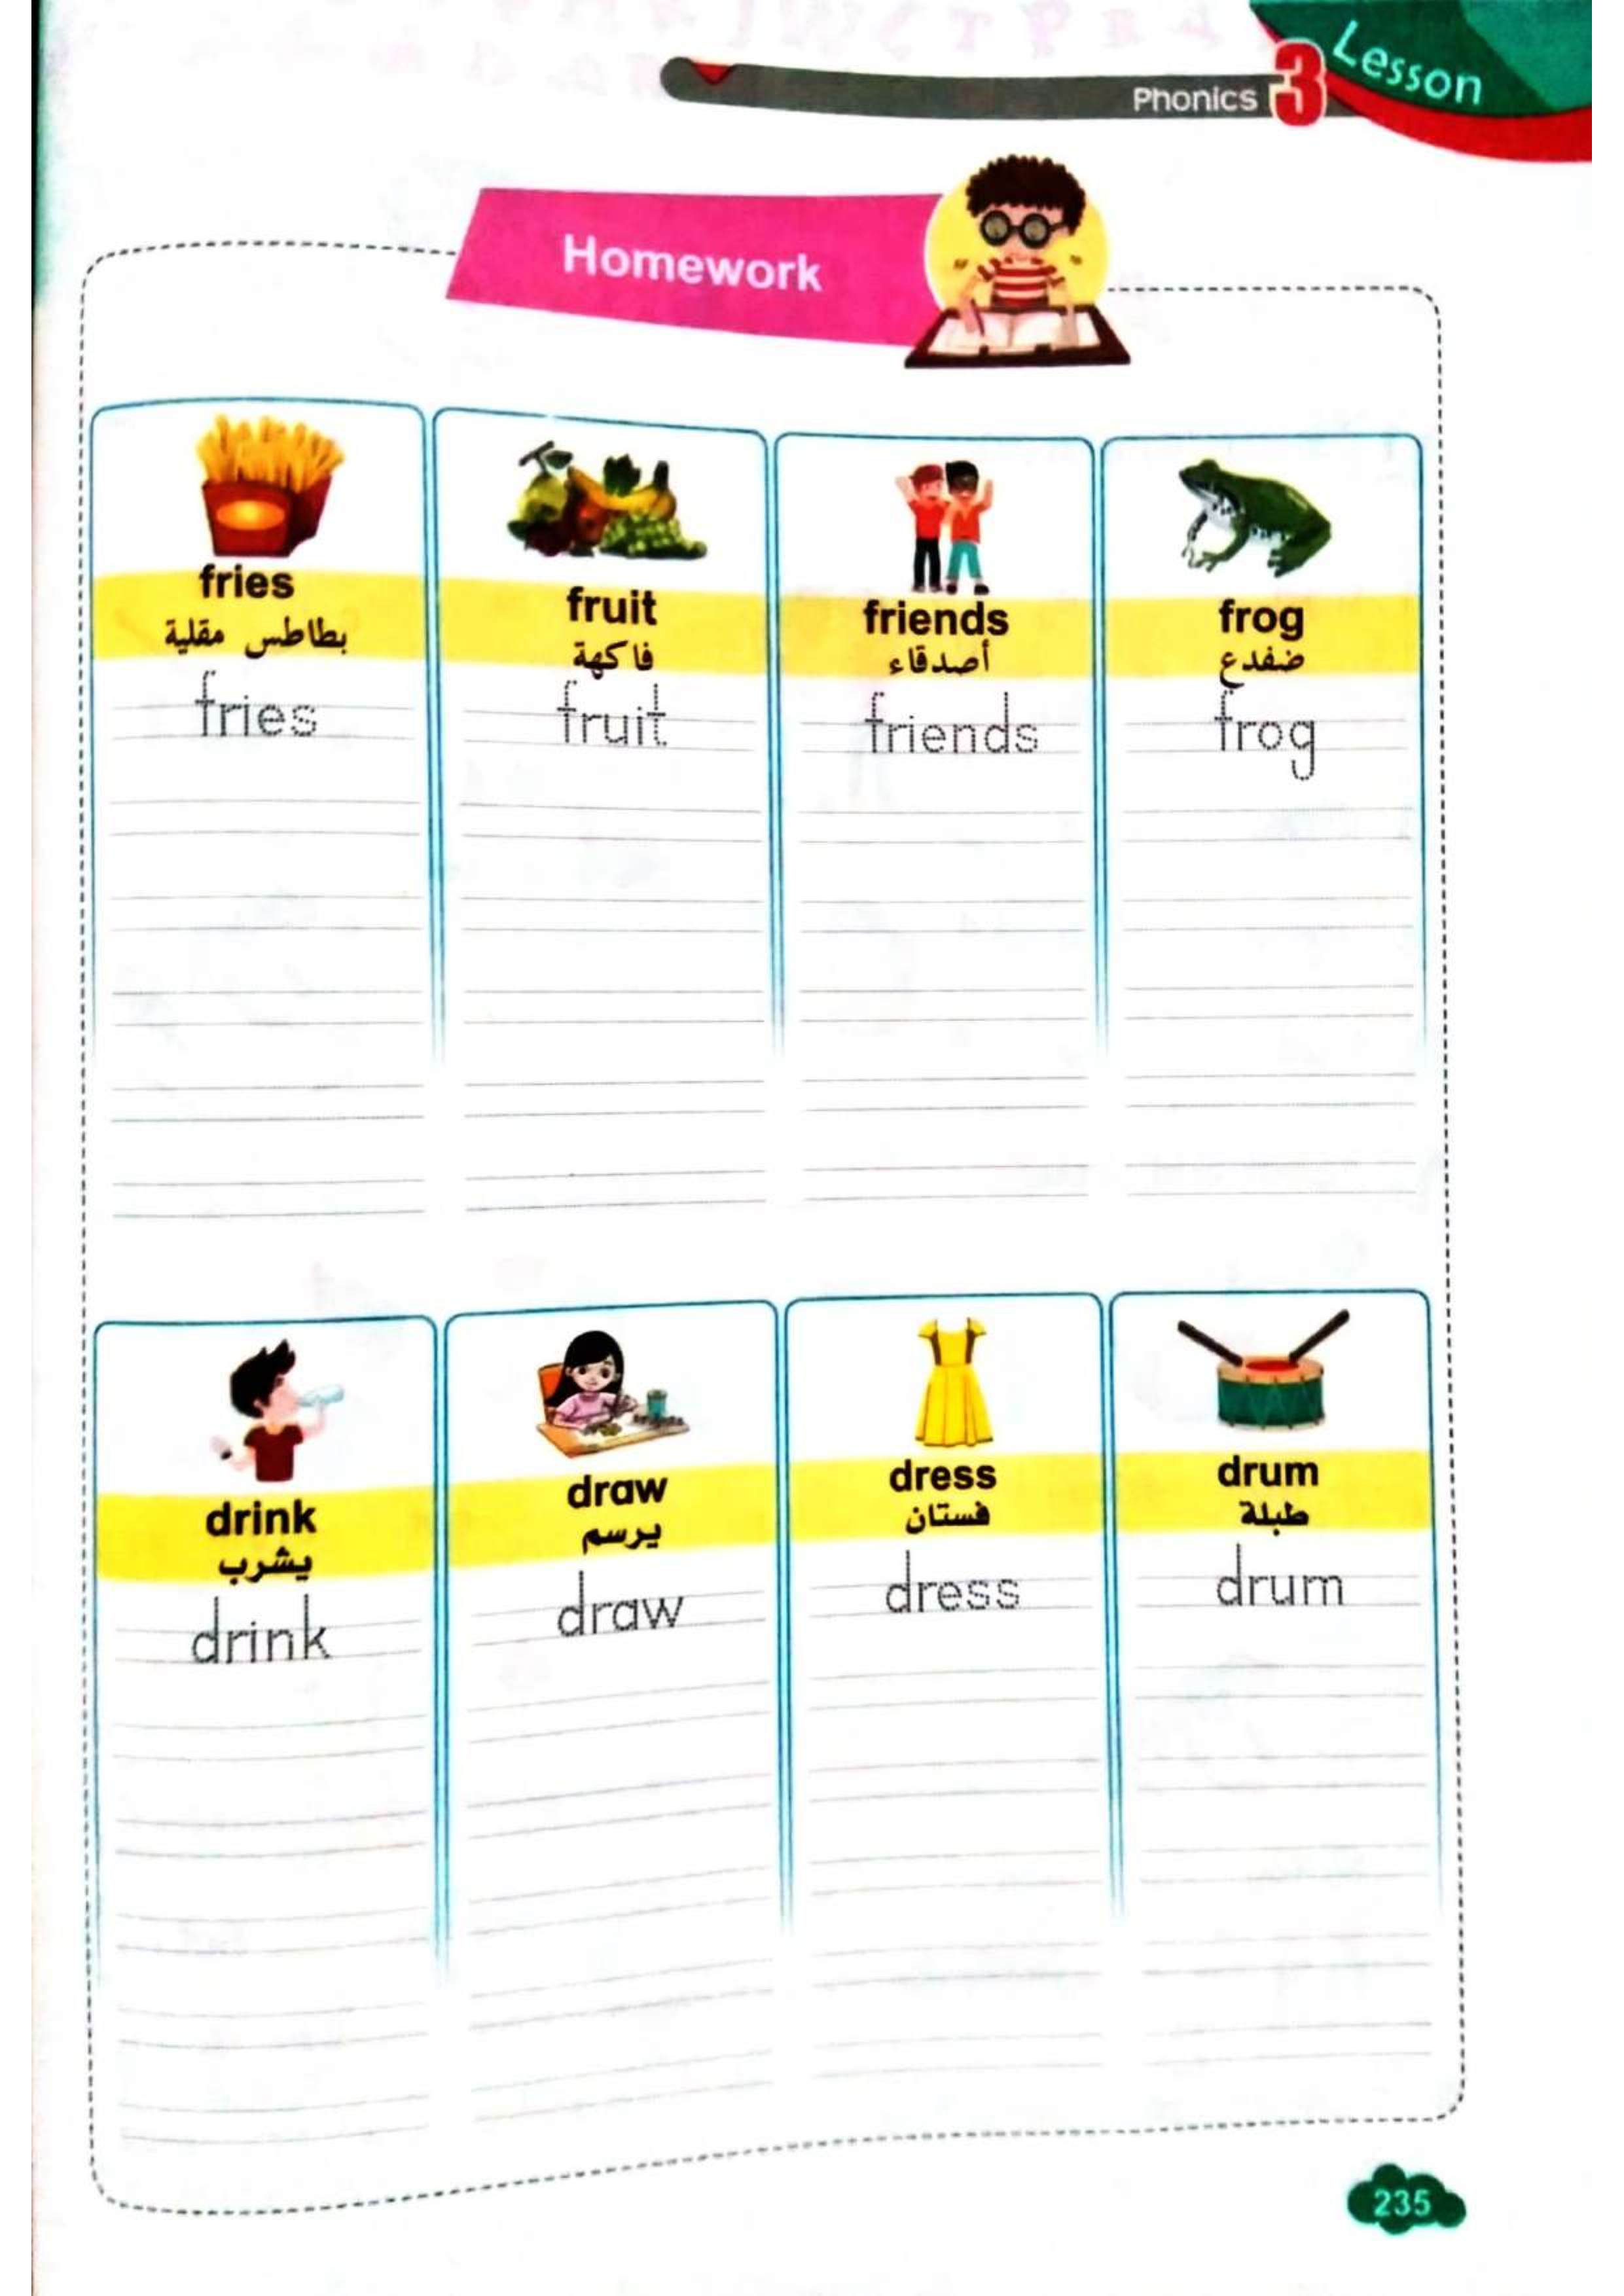 Lesson
Phonics 3
Homework
fries
بطاطس مقلية
fries
fruit
فاكهة
fruit
friends
أصدقاء
friends
frog
ضفدع
frog
drink
يشرب
drink
draw
يرسم
draw
dress
فستان
dress
drum
طبلة
drum
235